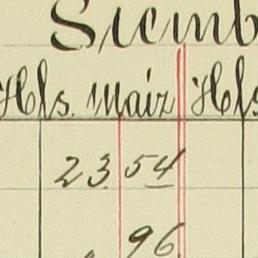 Siemb
Hfs. Maiz Hfs
23 54
96